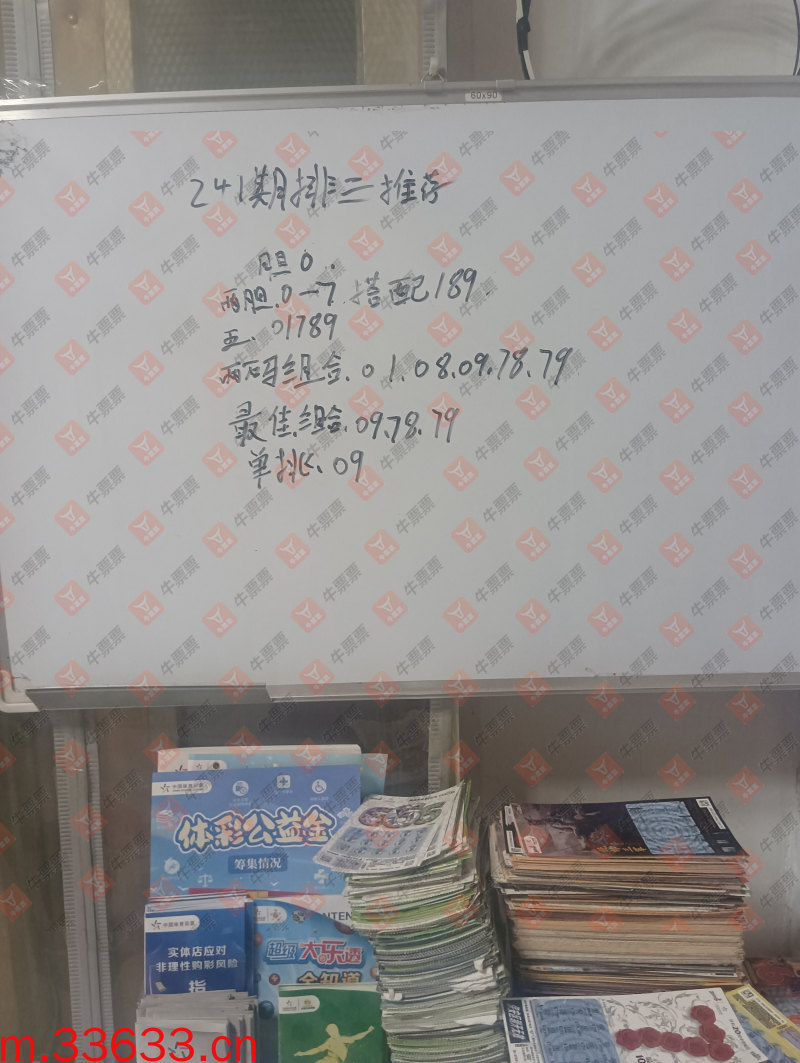 60x90
241期排三推荐
胆0.
两胆.0一7.搭配189.
五.01789
两码组合.01.08.09.78.79
最佳组合.09.78.79
单挑.09
牛票票
中国体育彩票
体彩公益金
筹集情况
中国体育彩票
实体店应对
非理性购彩风险
指
超级大乐透
全知道
m.33633.cn